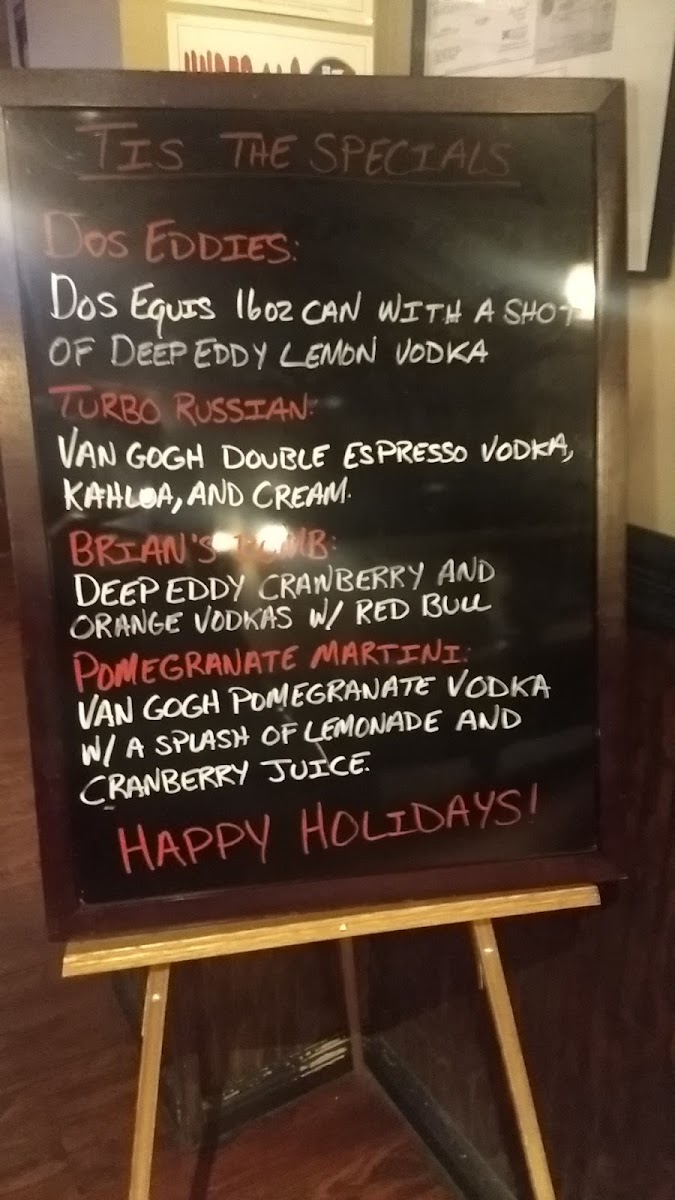 TIS THE SPECIALS
DOS EDDIES:
DOS EQUIS 16OZ CAN WITH A SHOT
OF DEEP EDDY LEMON VODKA
TURBO RUSSIAN:
VAN GOGH DOUBLE ESPRESSO VODKA,
KAHLUA, AND CREAM.
BRIAN'S
DEEP EDDY CRANBERRY AND
ORANGE VODKAS W/ RED BULL
POMEGRANATE MARTINI:
VAN GOGH POMEGRANATE VODKA
W/ A SPLASH OF LEMONADE AND
CRANBERRY JUICE.
HAPPY HOLIDAYS!